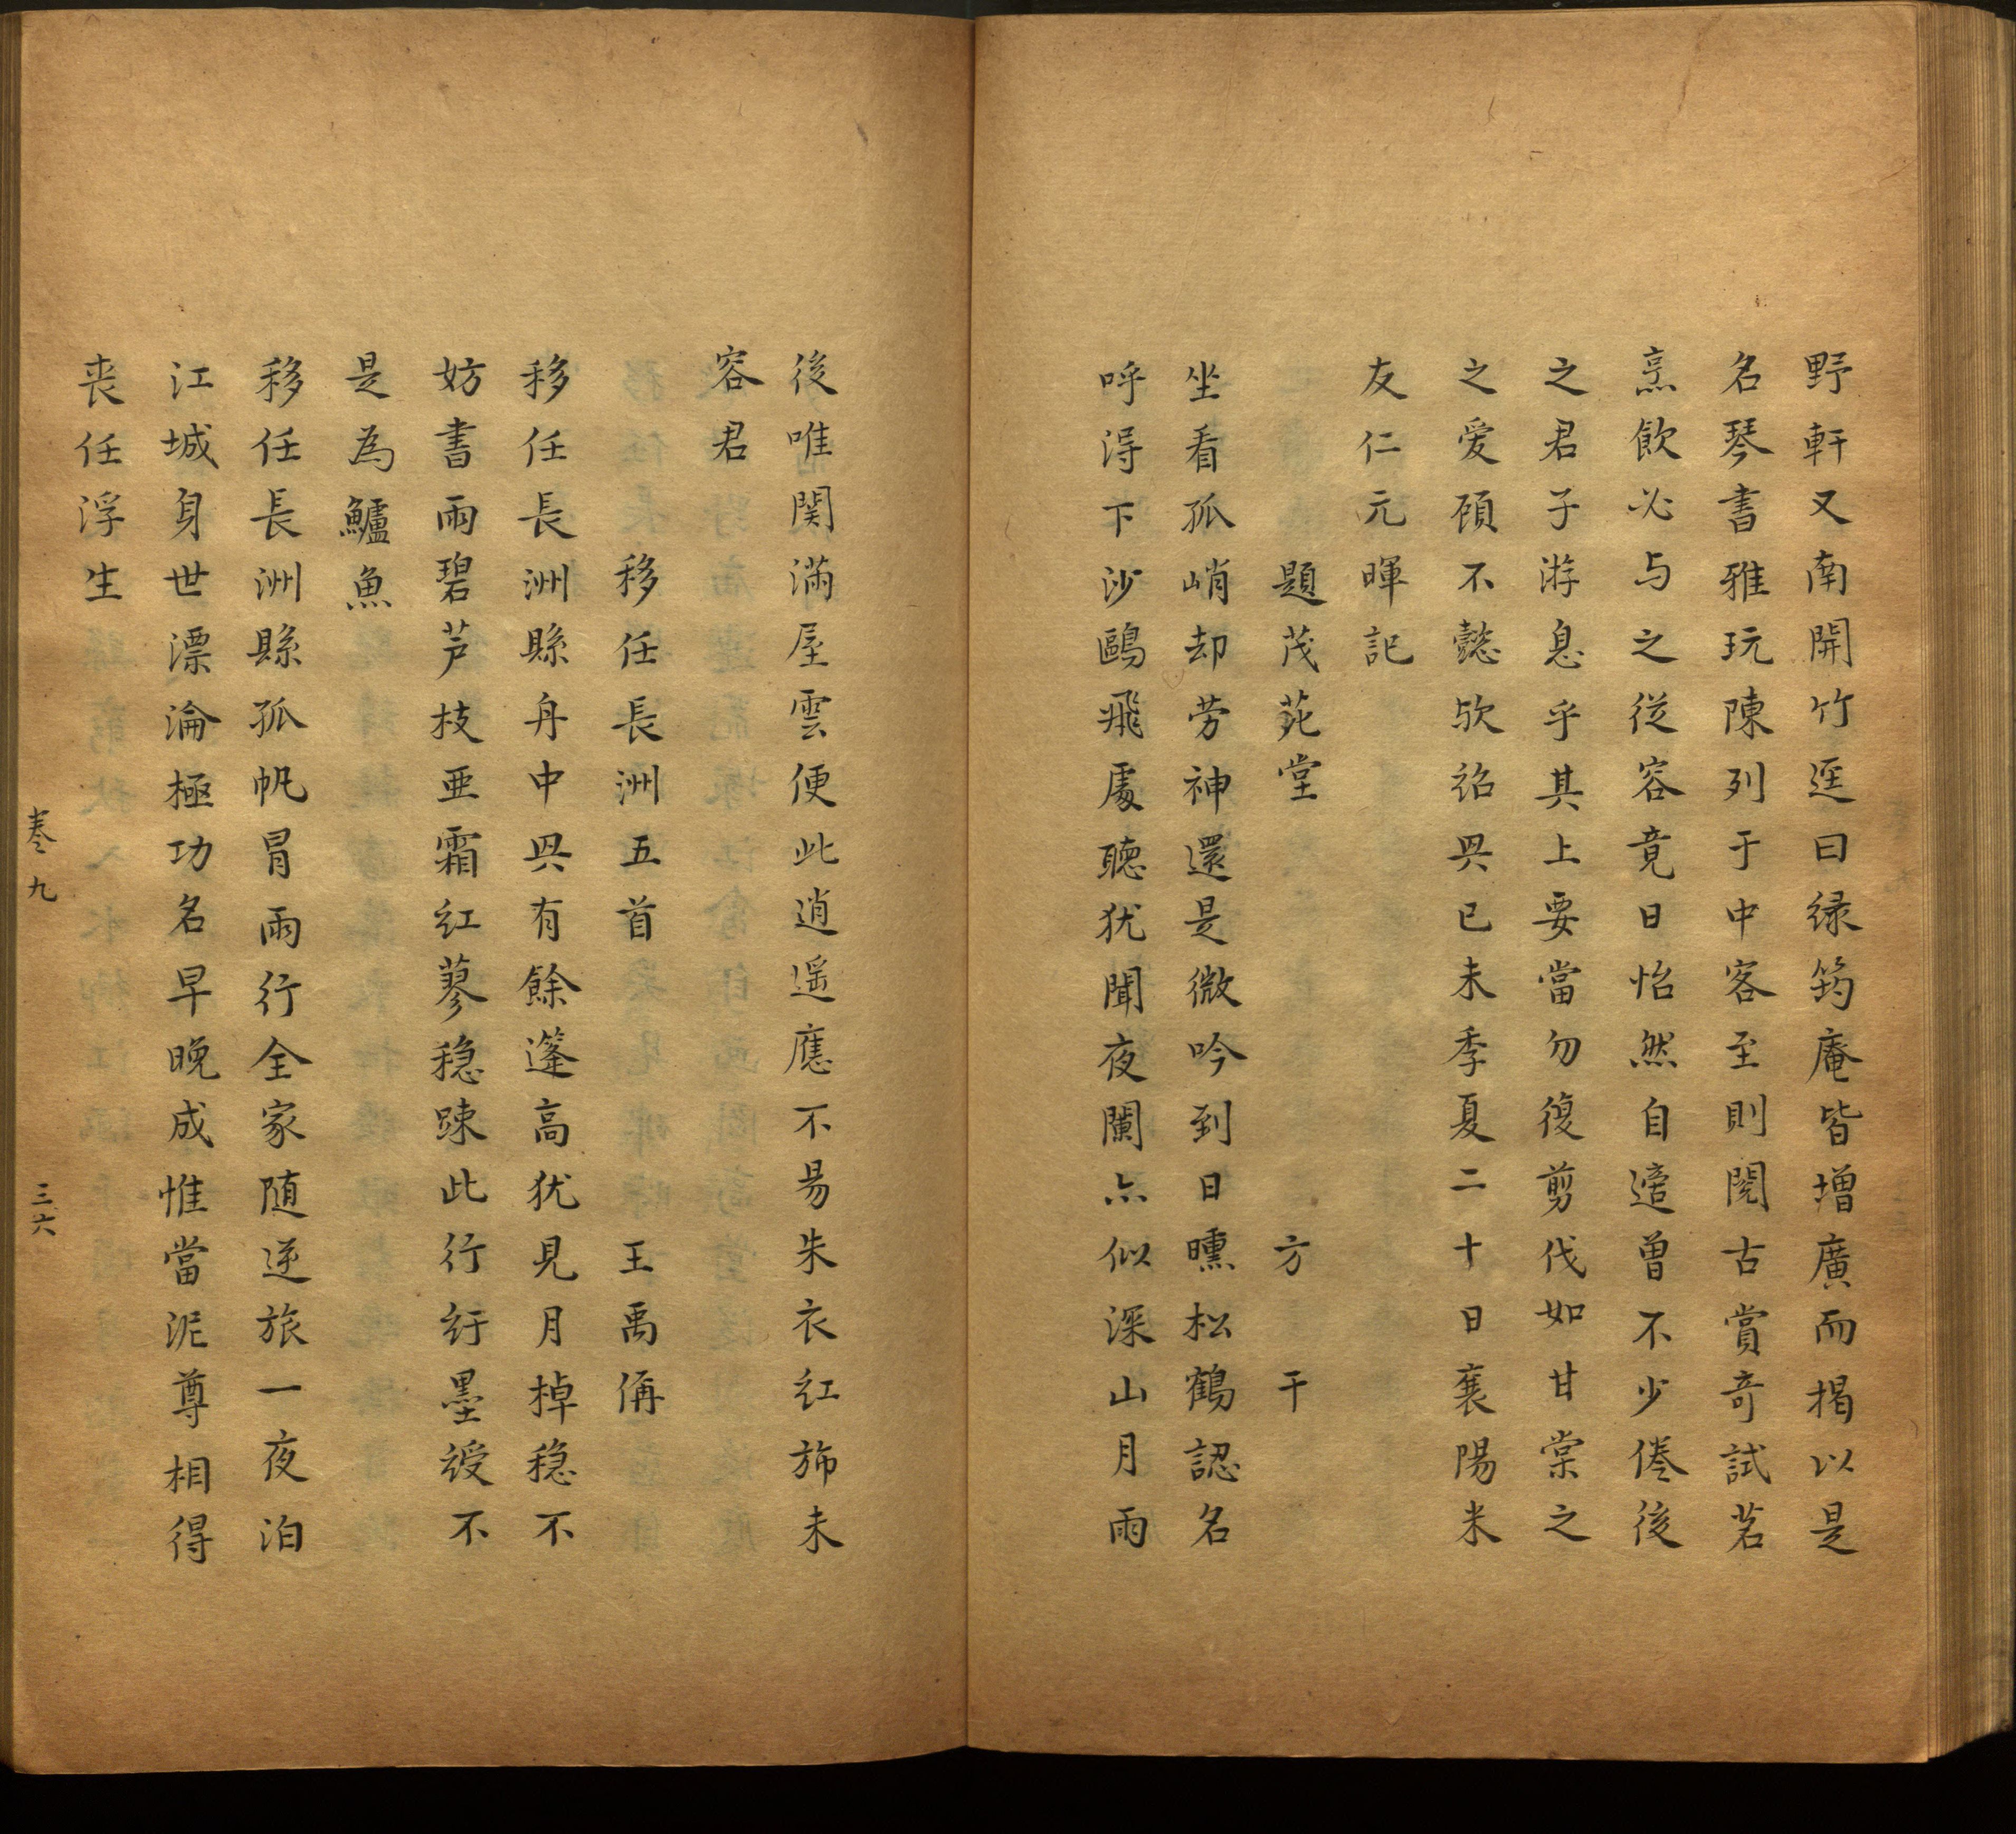 野軒又南開竹逕曰緑筠庵皆增廣而揭以是
名琴書雅玩陳列于中客至則閱古賞奇試茗
烹飲必与之從容竟日怡然自適曾不少倦後
之君子游息乎其上要當勿復剪伐如甘棠之
之爱頋不懿欤紹興已未季夏二十日襄陽米
友仁元暉記
題茂苑堂 方干
坐看孤峭却劳神還是微吟到日曛松鶴認名
呼淂下沙鷗飛處聴犹聞夜闌亦似深山月雨
後唯関滿屋雲便此逍遥應不易朱衣紅斾未
容君
移任長洲五首 王禹偁
移任長洲縣舟中興有餘蓬高犹見月棹穏不
妨書雨碧芦枝亜霜紅蓼穗踈此行紆墨綬不
是為鱸魚
移任長洲縣孤帆冒雨行全家随逆旅一夜泊
江城身世漂淪極功名早晚成惟當泥尊相得
丧任浮生
卷九 三六